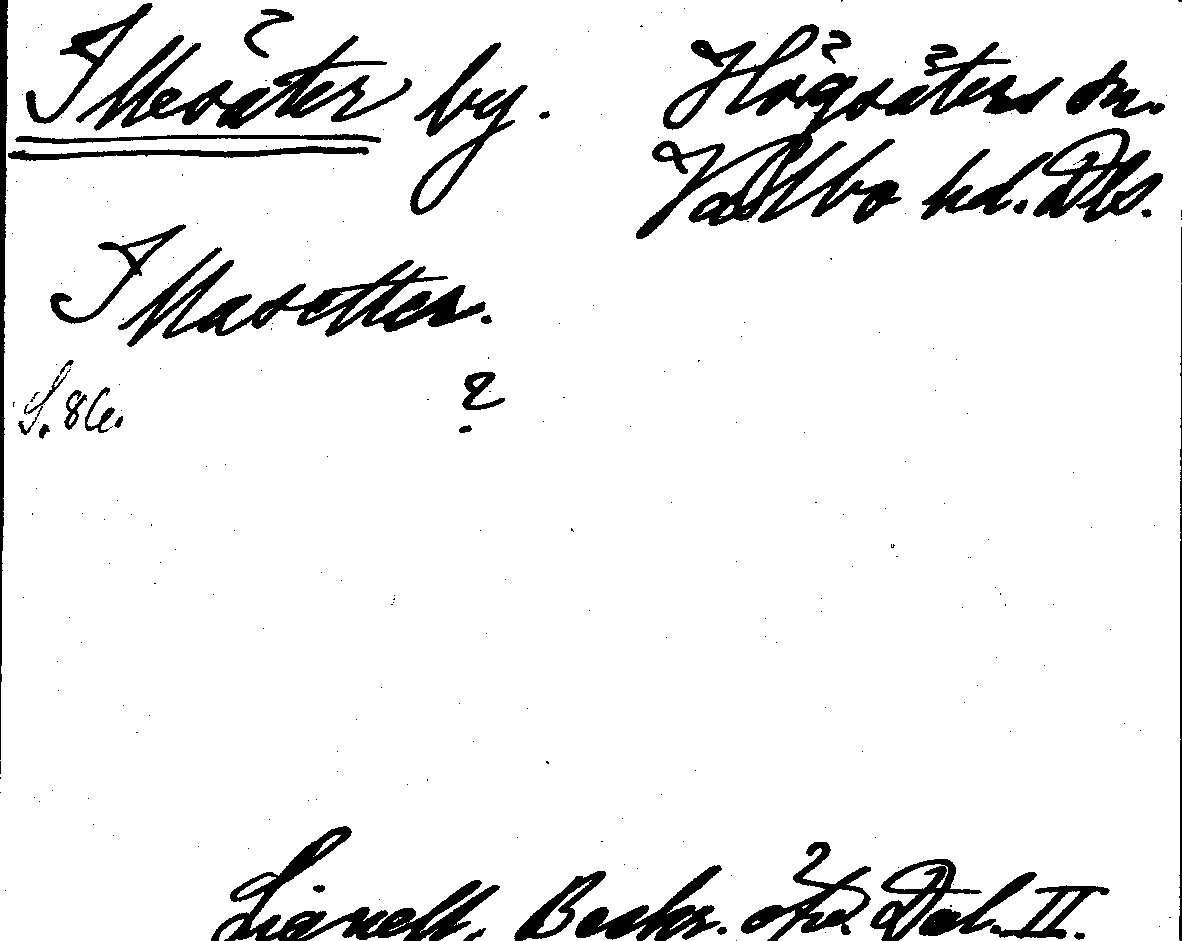 Mesäter by. Högsäters sn.
Valbo hd. Dls.
Masetter.
S. 86. ?
Lignell, Beskr. öfv. Dal. II.